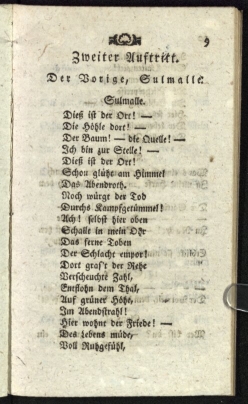 9
Zweiter Auftritt.
Der Vorige, Sulmalle.
Sulmalle.
Dieß ist der Ort! —
Die Höhle dort! —
Der Baum! — die Quelle! —
Ich bin zur Stelle! —
Dieß ist der Ort!
Schon glüht am Himmel
Das Abendroth.
Noch würgt der Tod
Durchs Kampfgetümmel!
Ach! selbst hier oben
Schallt in mein Ohr
Das ferne Toben
Der Schlacht empor!
Dort gras't der Rehe
Verscheuchte Zahl,
Entflohn dem Thal,
Auf grüner Höhe,
Im Abendstrahl!
Hier wohnt der Friede! —
Des Lebens müde,
Voll Ruhgefühl,